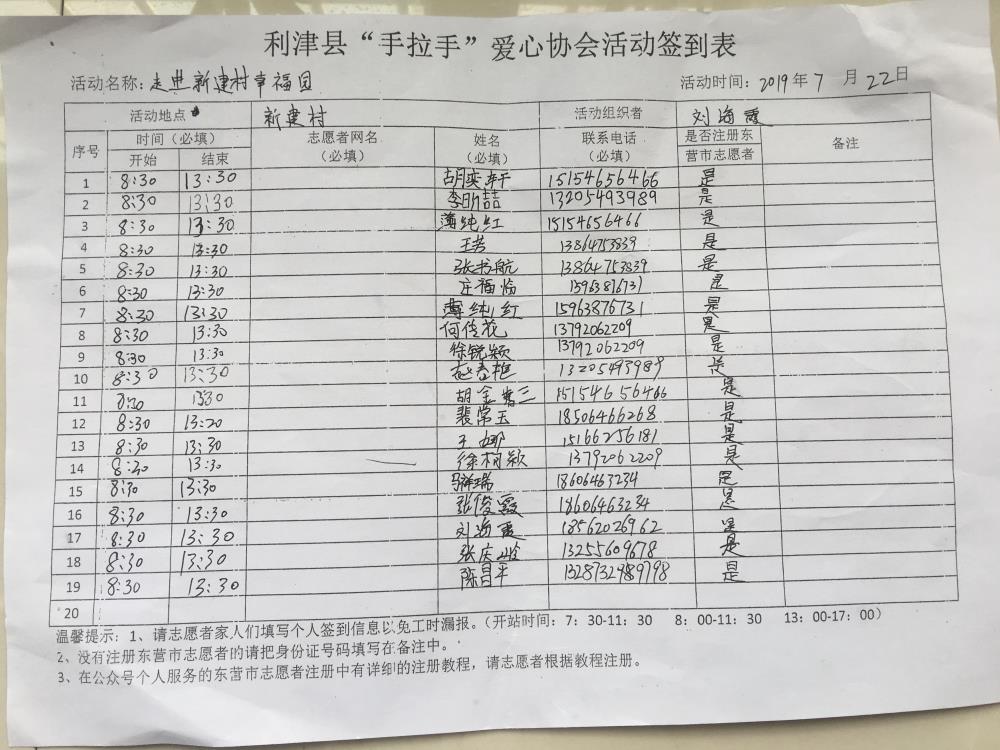 利津县“手拉手”爱心协会活动签到表
活动名称: 走进新建村幸福园 活动时间: 2019年 7 月 22日
活动地点 新建村 活动组织者 刘海霞
序号 时间（必填） 志愿者网名 姓名 联系电话 是否注册东 备注
开始 结束 （必填） （必填） （必填） 营市志愿者
1 8:30 13:30 胡奕轩 15154656466 是
2 8:30 13:30 李昕喆 13205493989 是
3 8:30 13:30 薄纯红 15154656466 是
4 8:30 13:30 王芳 13864753839 是
5 8:30 13:30 张书航 13864753839 是
6 8:30 13:30 庄福怡 15963876731 是
7 8:30 13:30 薄纯红 15963876731 是
8 8:30 13:30 何传花 13792062209 是
9 8:30 13:30 徐锐颖 13792062209 是
10 8:30 13:30 赵春 13205493989 是
11 8:30 1330 胡金 15154656466 是
12 8:30 13:20 裴常玉 18506466268 是
13 8:30 13:30 王娜 15166256181 是
14 8:30 13:30 徐柯颖 13792062209 是
15 8:30 13:30 马祥瑞 18606463234 是
16 8:30 13:30 张俊霞 18606463234 是
17 8:30 13:30 刘海霞 18562026962 是
18 8:30 13:30 张庆 13255609678 是
19 8:30 13:30 陈昌平 是
20
温馨提示: 1、请志愿者家人们填写个人签到信息以免工时漏报。（开站时间: 7: 30-11: 30 8: 00-11: 30 13: 00-17: 00）
2、没有注册东营市志愿者的请把身份证号码填写在备注中。
3、在公众号个人服务的东营市志愿者注册中有详细的注册教程，请志愿者根据教程注册。